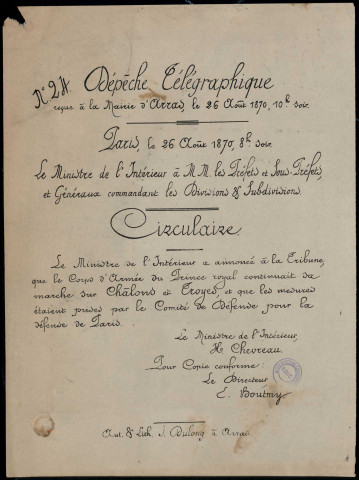 N° 24. Dépêche Télégraphique
reçue à la Mairie d'Arras, le 26 Août 1870, 10h soir.
Paris, le 26 Août 1870, 8h soir
Le Ministre de l'Intérieur à M.M. les Préfets et Sous-Préfets,
et Généraux commandant les Divisions & Subdivisions.
Circulaire
Le Ministre de l'Intérieur a annoncé à la Tribune
que le Corps d'Armée du Prince royal continuait sa
marche sur Châlons et Troyes, et que les mesures
étaient prises par le Comité de Défense pour la
défense de Paris.
Le Ministre de l'Intérieur,
H. Chevreau.
Pour Copie conforme:
Le Directeur
E. Boutmy
Aut. & Lith. J. Dulong à Arras